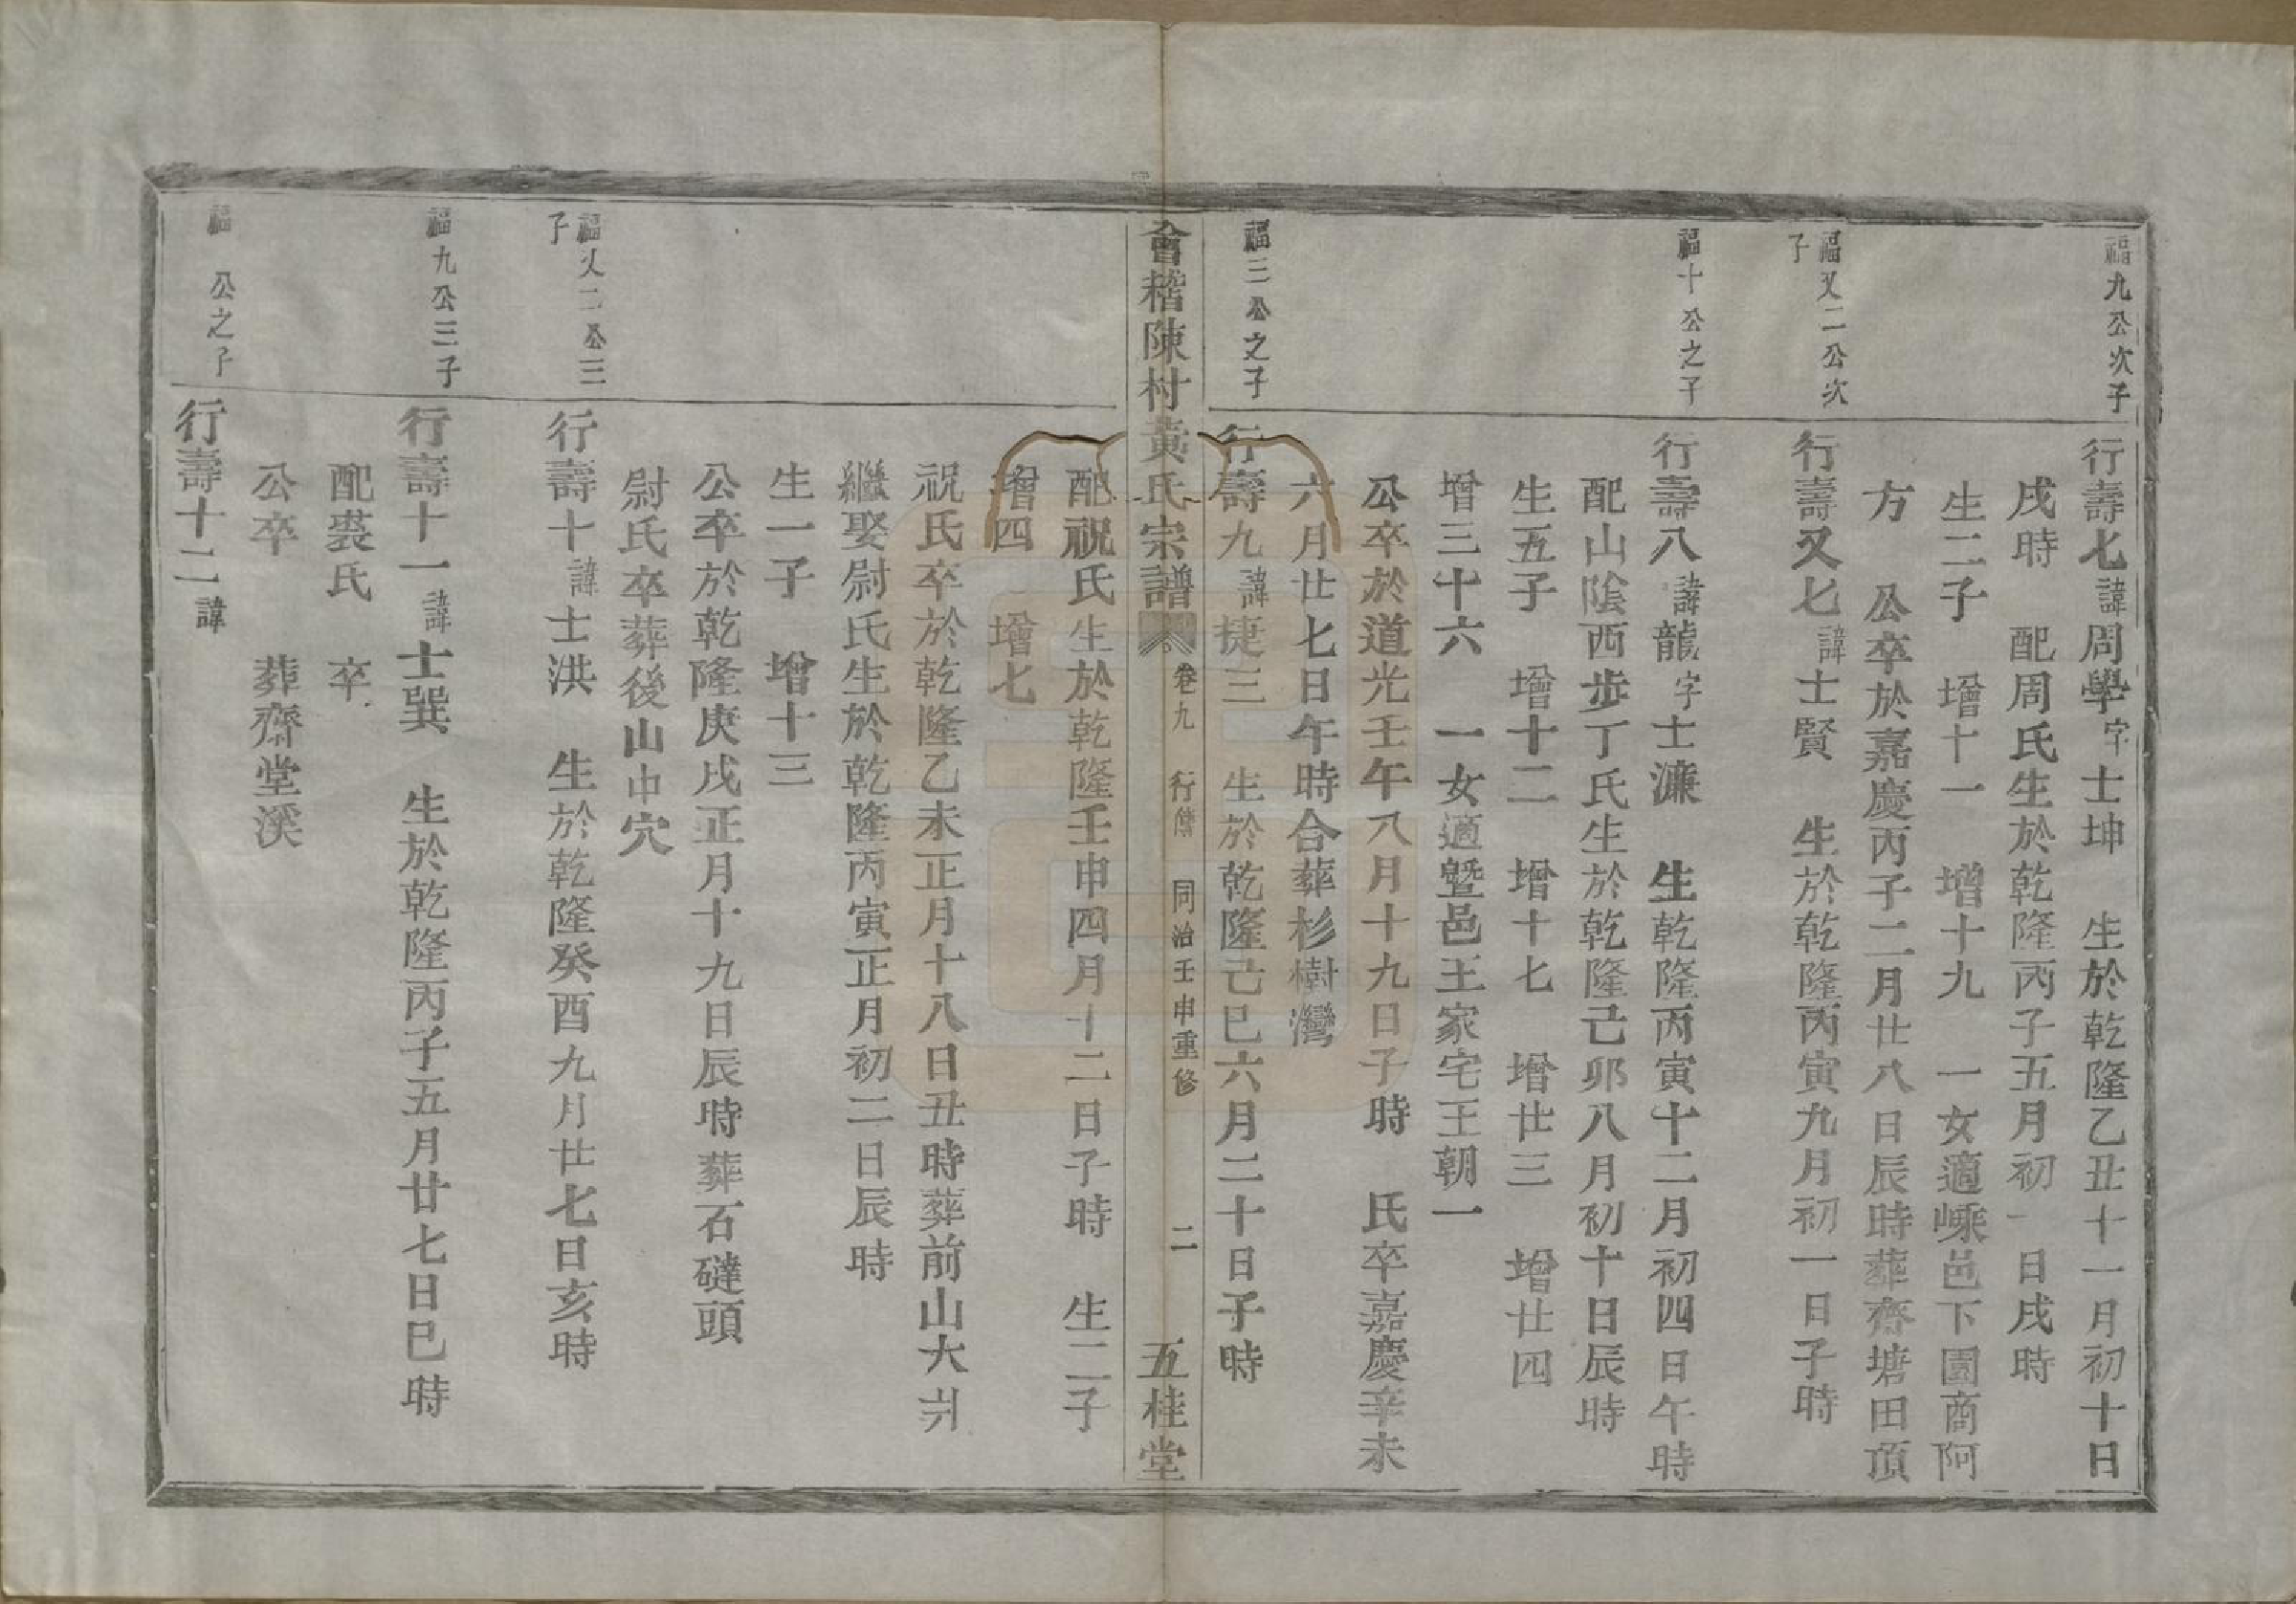 福九公次子
行壽七諱周學字士坤 生於乾隆乙丑十一月初十日
戌時 配周氏生於乾隆丙子五月初一日戌時
生二子 增十一 增十九 一女適嵊邑下園商阿
方 公卒於嘉慶丙子二月廿八日辰時葬齊塘田頂
福又二公次子
行壽又七諱士賢 生於乾隆丙寅九月初一日子時
福十公之子
行壽八諱龍字士濂 生乾隆丙寅十二月初四日午時
配山陰西步丁氏生於乾隆己卯八月初十日辰時
生五子 增十二 增十七 增廿三 增廿四
增三十六 一女適暨邑王家宅王朝一
公卒於道光壬午八月十九日子時 氏卒嘉慶辛未
六月廿七日午時合葬杉樹灣
福三公之子
行壽九諱捷三 生於乾隆己巳六月二十日子時
會稽陳村黃氏宗譜 卷九 行傳 同治壬申重修 二 五桂堂
配祝氏生於乾隆壬申四月十二日子時 生二子
增四 增七
祝氏卒於乾隆乙未正月十八日丑時葬前山大
繼娶尉氏生於乾隆丙寅正月初二日辰時
生一子 增十三
公卒於乾隆庚戌正月十九日辰時葬石磋頭
尉氏卒葬後山中穴
福又二公三子
行壽十諱士洪 生於乾隆癸酉九月廿七日亥時
福九公三子
行壽十一諱士巽 生於乾隆丙子五月廿七日巳時
配裘氏 卒
公卒 葬齋堂溪
福 公之子
行壽十二諱